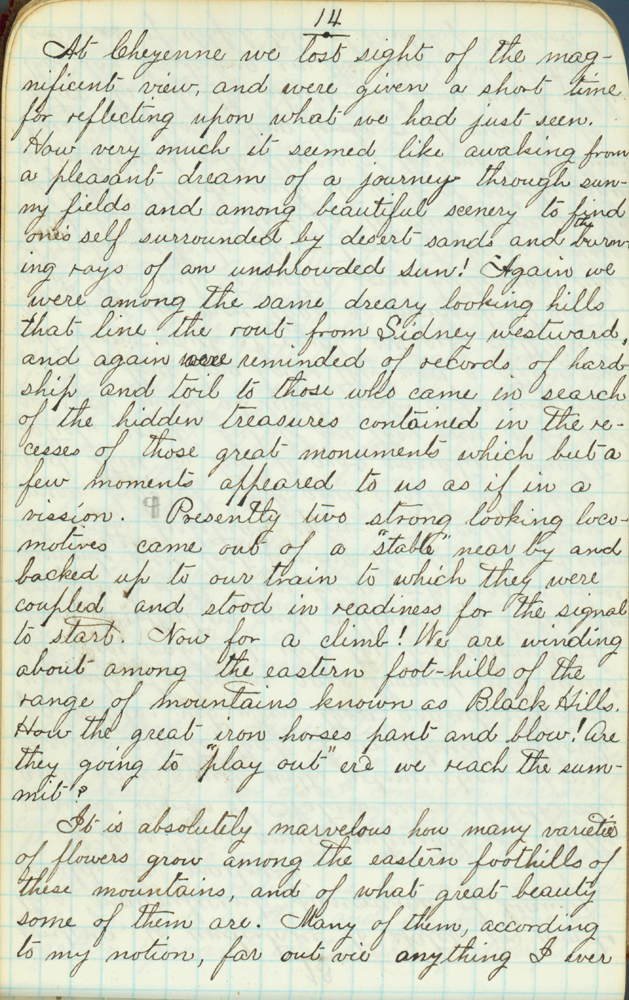 14
At Cheyenne we lost sight of the mag-
nificent view, and were given a short time
for reflecting upon what we had just seen.
How very much it seemed like awaking from
a pleasant dream of a journey through sun-
ny fields and among beautiful scenery to find
one's self surrounded by desert sands and the burn-
ing rays of an unshrowded sun! Again we
were among the same dreary looking hills
that line the rout from Sidney westward,
and again were reminded of records of hard-
ship and toil to those who came in search
of the hidden treasures contained in the re-
cesses of those great monuments which but a
few moments appeared to us as if in a
vission. ¶ Presently two strong looking loco-
motives came out of a "stable" near by and
backed up to our train to which they were
coupled and stood in readiness for the signal
to start. Now for a climb! We are winding
about among the eastern foot-hills of the
range of mountains known as Black Hills.
How the great iron horses pant and blow! Are
they going to "play out" ere we reach the sum-
mit?
It is absolutely marvelous how many varieties
of flowers grow among the eastern foothills of
these mountains, and of what great beauty
some of them are. Many of them, according
to my notion, far out vie anything I ever